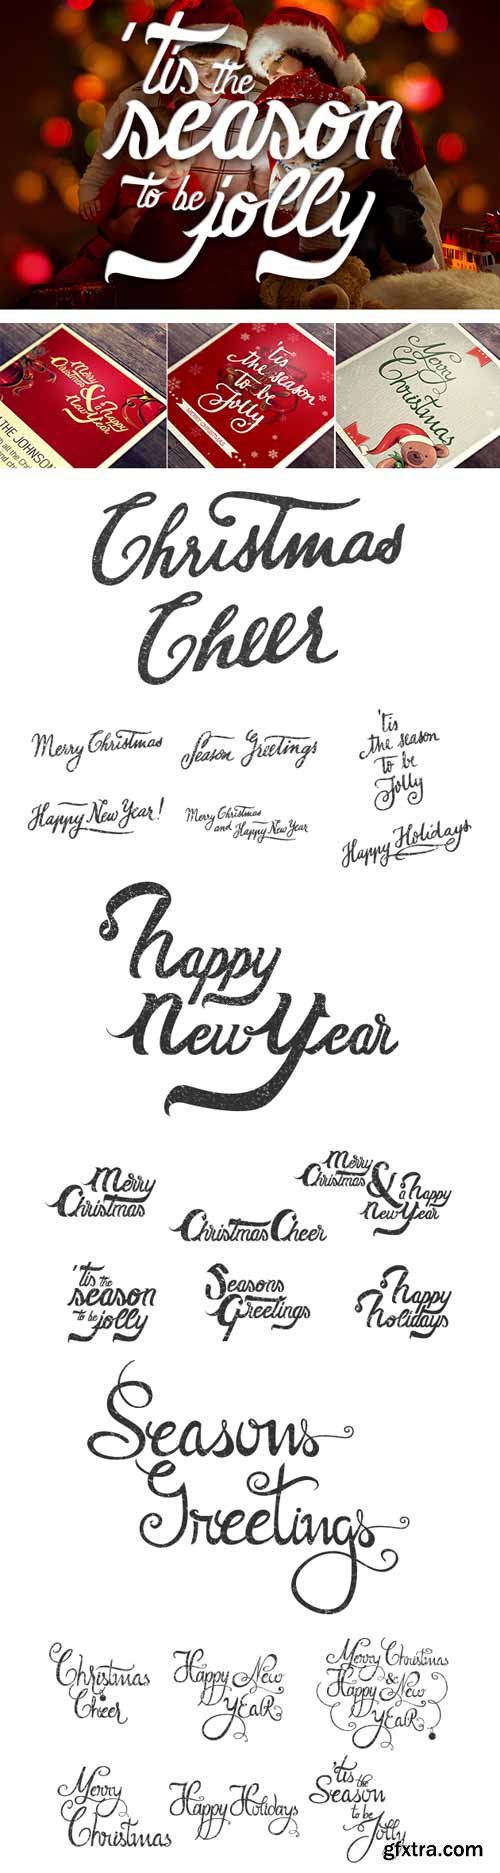 'tis the
season
to be jolly
Merry
Christmas
& a happy
New Year
THE JOHNSON
'tis
the season
to be
Jolly
Merry
Christmas
Christmas
Cheer
Merry Christmas
Season Greetings
'tis
the season
to be
Jolly
Happy New Year!
Merry Christmas
and Happy New Year
Happy Holidays
happy
New Year
Merry
Christmas
Christmas Cheer
Merry
Christmas
& a happy
New Year
'tis the
season
to be jolly
Seasons
Greetings
happy
holidays
Seasons
Greetings
Christmas
Cheer
Happy New
YEaR
Merry Christmas
&
Happy New
YEaR
Merry
Christmas
Happy Holidays
'tis the
Season
to be
Jolly
gfxtra.com